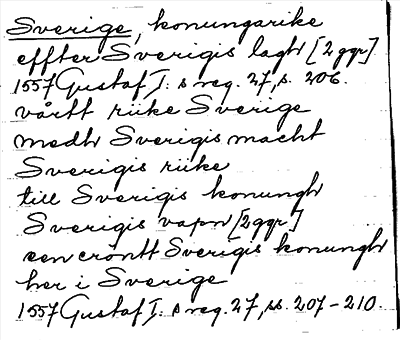 Sverige, konungarike
effter Sverigis lagh [2 ggr].
1557 Gustaf I. s reg. 27, s. 206.
vårtt riike Sverige
medh Sverigis macht
Sverigis riike
till Sverigis konungh
Sverigis vapn [2 ggr]
een cröntt Sverigis konungh
her i Sverige
1557 Gustaf I. s reg. 27, ss. 207-210.